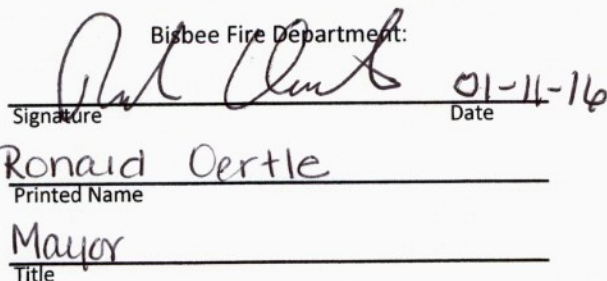 Bisbee Fire Department:
01-11-16
Signature Date
Ronald Oertle
Printed Name
Mayor
Title